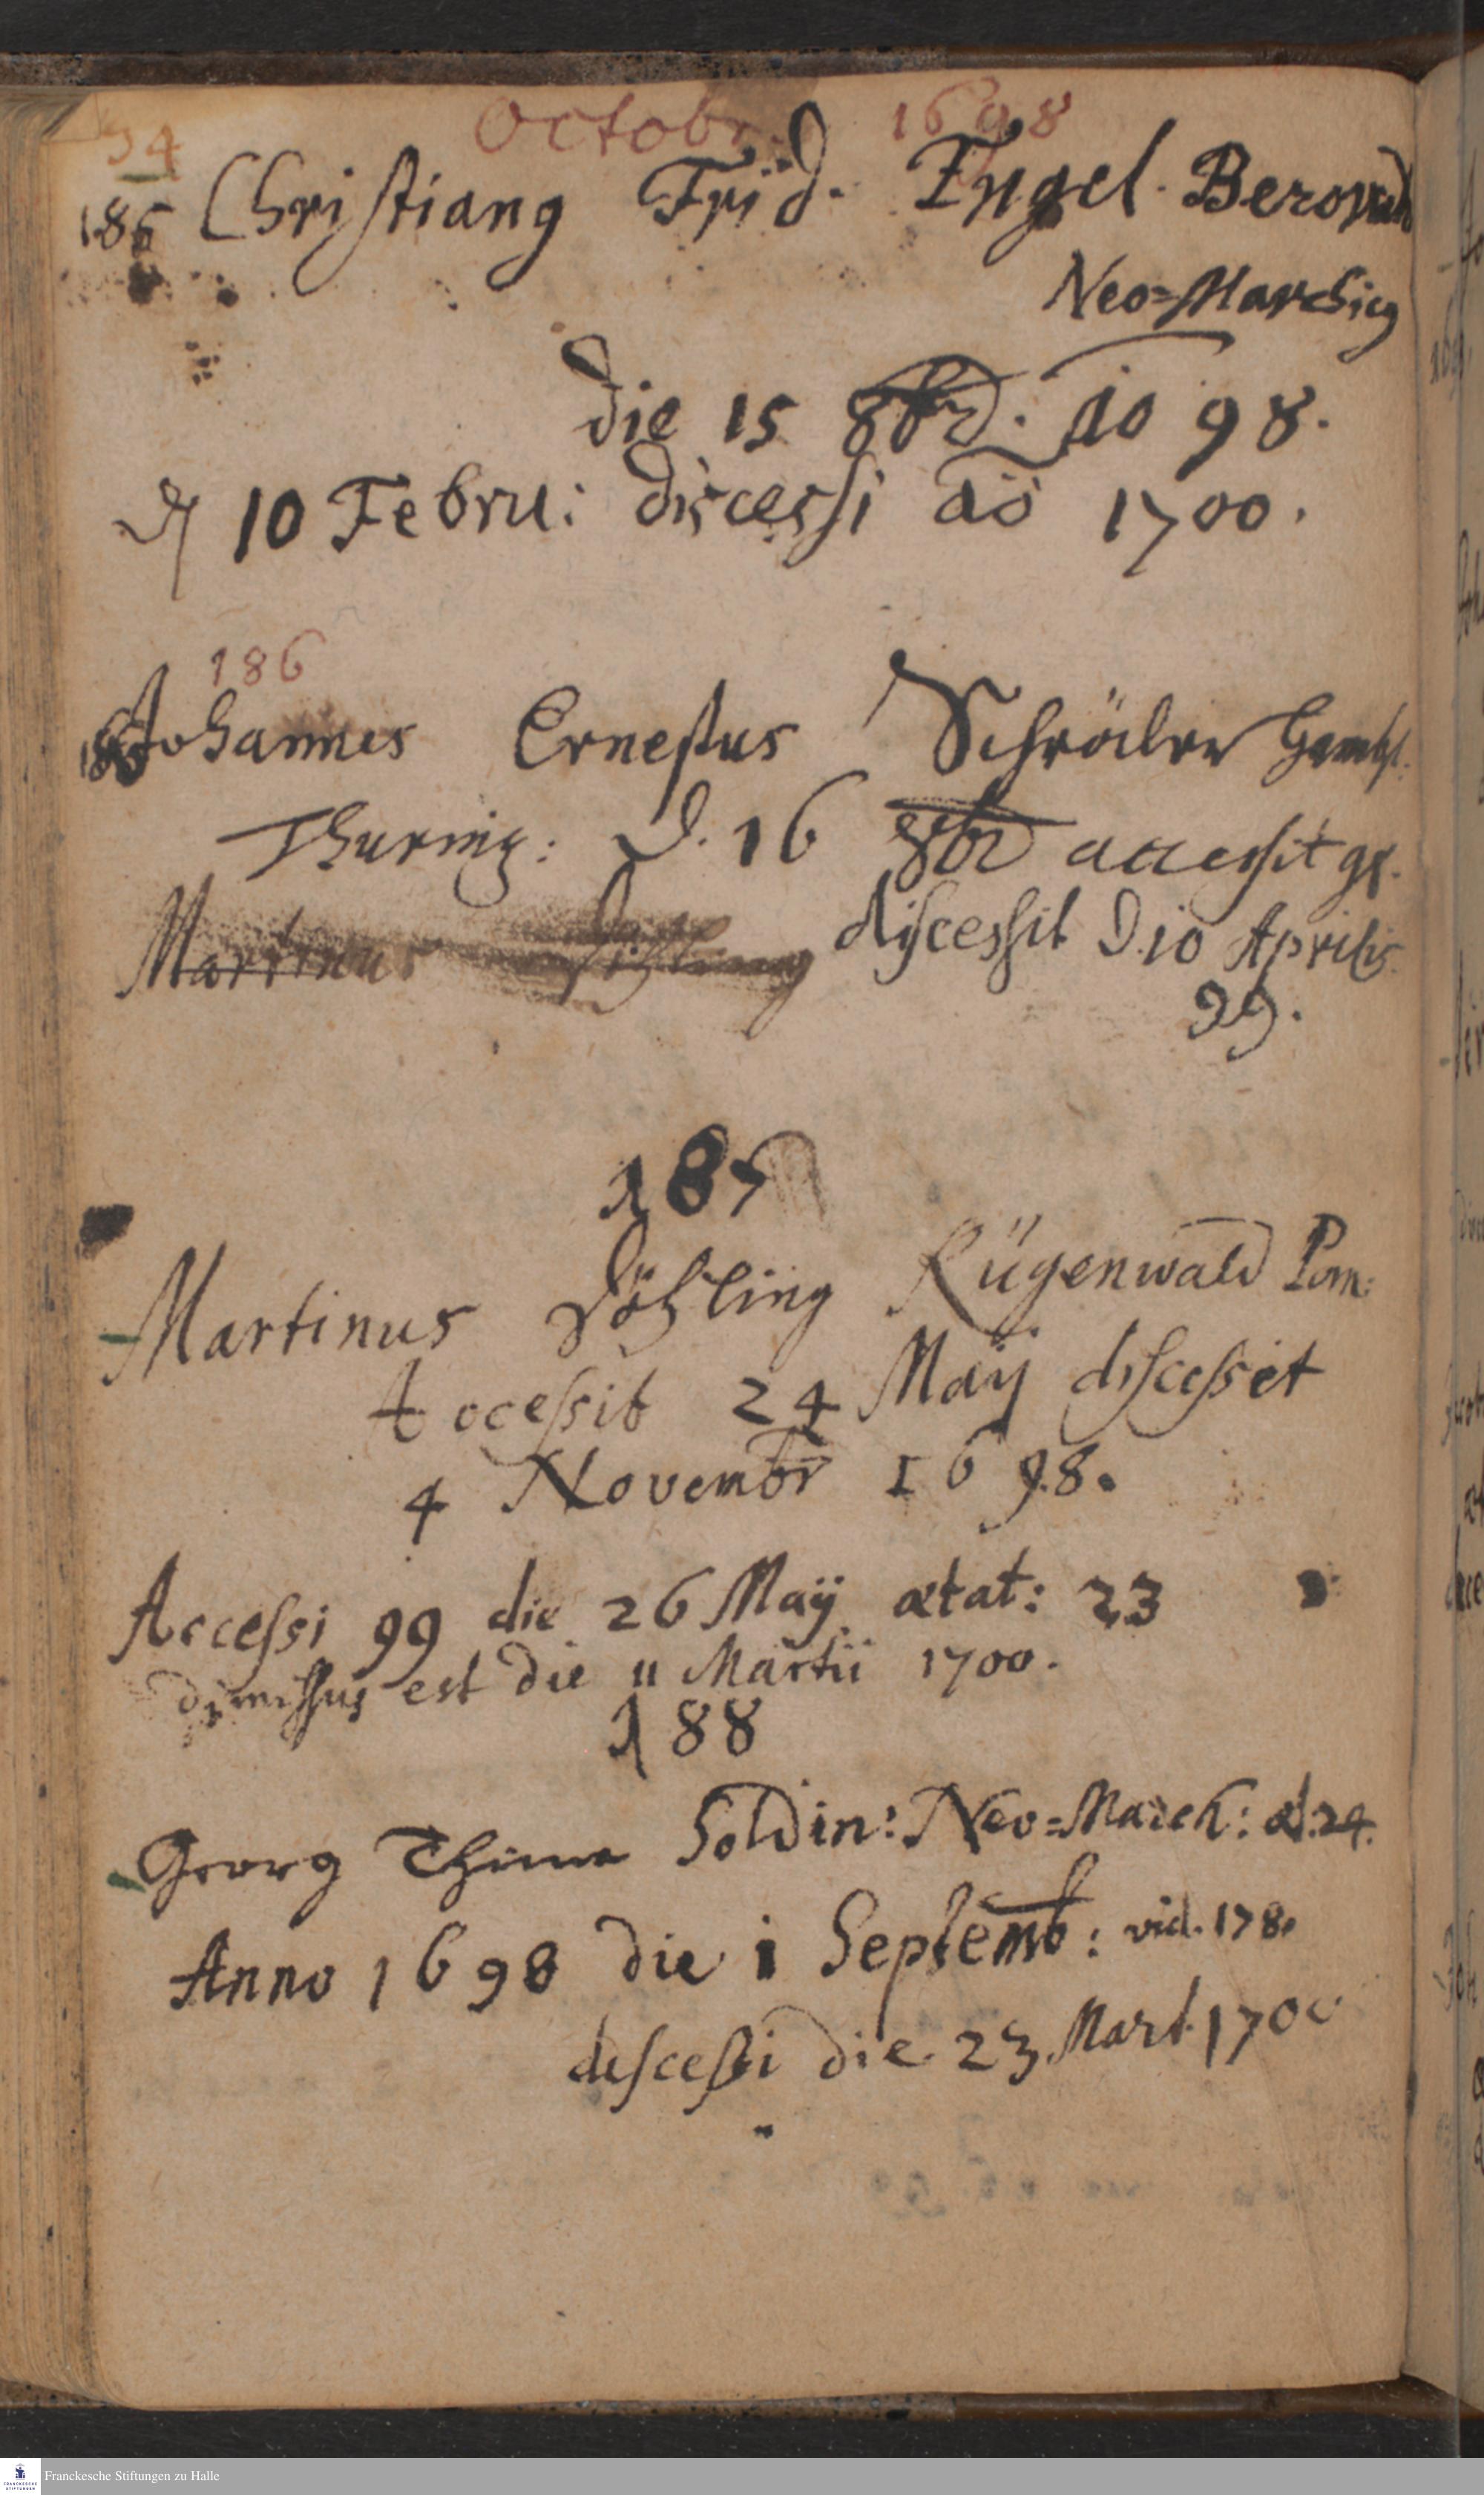 34 Octobr. 1698
185 Christiang Frid. Engel. 
Neo=Marchicg
die 15 8br. Ao 98.
d 10 Febru: discessi ao 1700.
186
Johannes Ernestus Schröder
Thuring: d. 16 8br accessit 98.
Martinus discessit d. 10 Aprilis
99.
187
Martinus Döhling Rügenwald Pom:
Accessit 24 Maÿ discessit
4 Novembr 1698.
Accessi 99 die 26 Maÿ ætat: 23
dimissus est die 11 Martii 1700.
188
Georg Thime Soldin: Neo=March: æt. 24.
Anno 1698 die 1 Septemb: vid. 178.
discessi die 23 Mart. 1700
Franckesche Stiftungen zu Halle